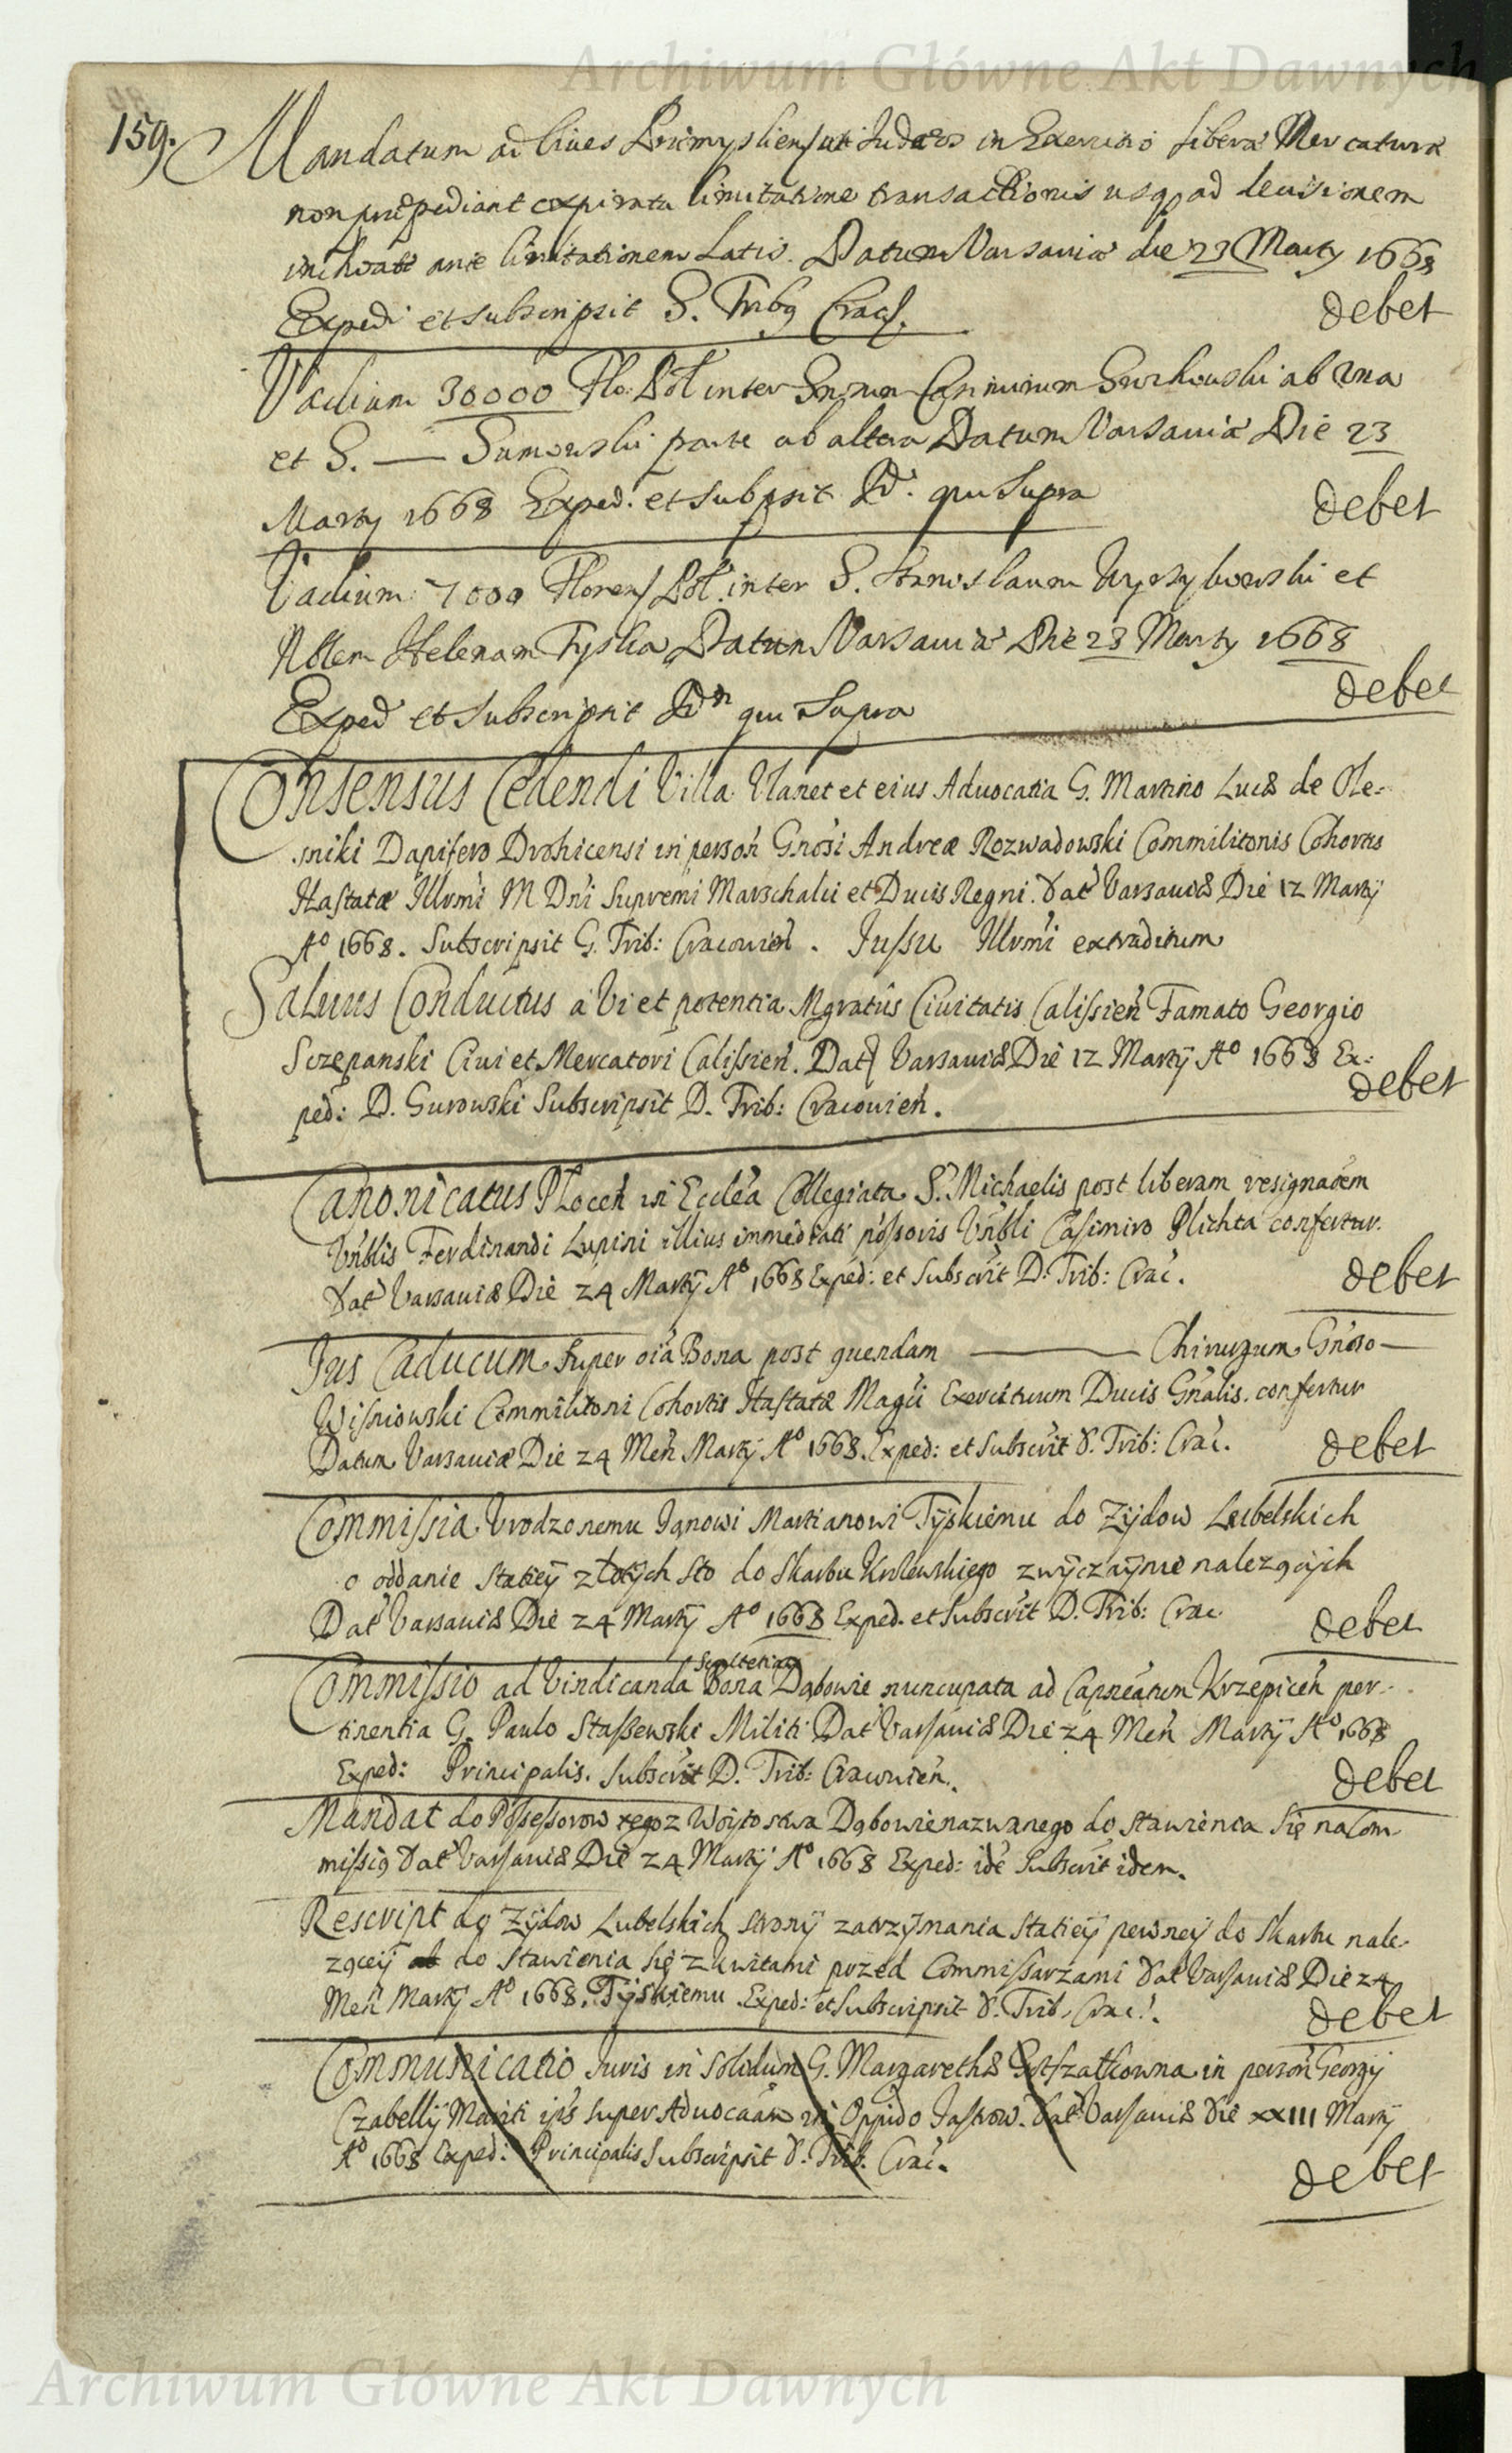 Archiwum Główne Akt Dawnych
159.
Mandatum ad Ciues Premysliens ut Judæos in Exercitio liberæ Mercaturæ
non præpediant expirata limitatione transactionis usq, ad decisionem
ante limitationem Latis. Datum Varsauiæ die 23 Marty 1668
Expedi et subscripsit G. Tribg Cracs.
debet
Vadium 30000 Flo: Pol inter Gnrum Casimirum ab una
et G. — Sumowski parte ab altera Datum Varsauiæ Die 23
Marty 1668 Exped. et subpsit Id. qui Supra
debet
Vadium 7000 Florens Pol. inter G. Stanislaum et
Nblem Helenam Tyska Datum Varsauiæ Die 23 Marty 1668
debet
Exped et subscripsit Idn qui Supra
Consensus Cedendi Villa Ulanet et eius Aduocatia G. Martino Lucæ de Ole-
sniki Dapifero Drohicensi in person Gnosi Andreæ Rozwadowski Commilitonis Cohortis
Hastatæ Illrmi M Dni Supremi Marschalci et Ducis Regni. Dat Varsauiæ Die 12 Martij
Aº 1668. Subscripsit G. Trib: Cracouien. Jussu Illrmi extraditum
Saluus Conductus a Vi et potentia Mgratus Ciuitatis Calissien Famato Georgio
Sczepanski Ciui et Mercatori Calissien. Dat Varsauiæ Die 12 Martij Aº 1668 Ex-
debet
ped: D. Gurowski Subscripsit D. Trib: Cracouien.
Canonicatus Plocen in Ecclea Collegiata S. Michaelis post liberam resignaoem
Vnblis Ferdinandi Lupini illius immediati possoris Vnbli Casimiro Plichta confertur.
Dat Varsauiæ Die 24 Martij Aº 1668 Exped: et Subscrit D. Trib: Crac.
debet
Jus Caducum super oia Bona post quendam ——— Chirurgum Gnoso —
Wisniowski Commilitoni Cohortis Hastatæ Magci Exercituum Ducis Gnalis. confertur
Datum Varsauiæ Die 24 Men Martij Aº 1668. Exped: et Subscrit D. Trib: Crac.
debet
Commissia Vrodzonemu Janowi Martianowi Tyskiemu do Zydow Lubelskich
o oddanie statiey złotych sto do skarbu Krolewskiego zwyczaynie nalezących
Dat Varsauiæ Die 24 Martij Aº 1668 Exped. et Subscrit D. Trib: Crac
debet
Scultetiam
Commissio ad Vindicanda Bona Dąbowie nuncupata ad Capneatum Krzepicen per-
tinentia G. Paulo Stassewski Militi Dat Varsauiæ Die 24 Men Martij Aº 1668
Exped: Principalis. Subscrit D. Trib: Cracouien.
debet
Mandat do Possessorow tegoz Woytostwa Dąbowie nazwanego do stawienia się na Com-
missią Dat Varsauiæ Die 24 Martij Aº 1668 Exped: ide Subscrit idem.
Rescript do Zydow Lubelskich strony zatrzymania statiey pewney do skarbu nale-
zącey do stawienia się z kwitami przed Commissarzami Dat Varsauiæ Die 24
Men Martij Aº 1668. Tyskiemu Exped: et Subscripsit D. Trib. Crac.
debet
Communicatio Juris in solidum G. Margarethæ in person Georgij
Czabelly Mariti ips super Aduocaam in Oppido Jastrow. Dat Varsauiæ Die XXIII Martij
Aº 1668 Exped: Principalis Subscripsit D. Trib. Crac.
debet
Archiwum Główne Akt Dawnych